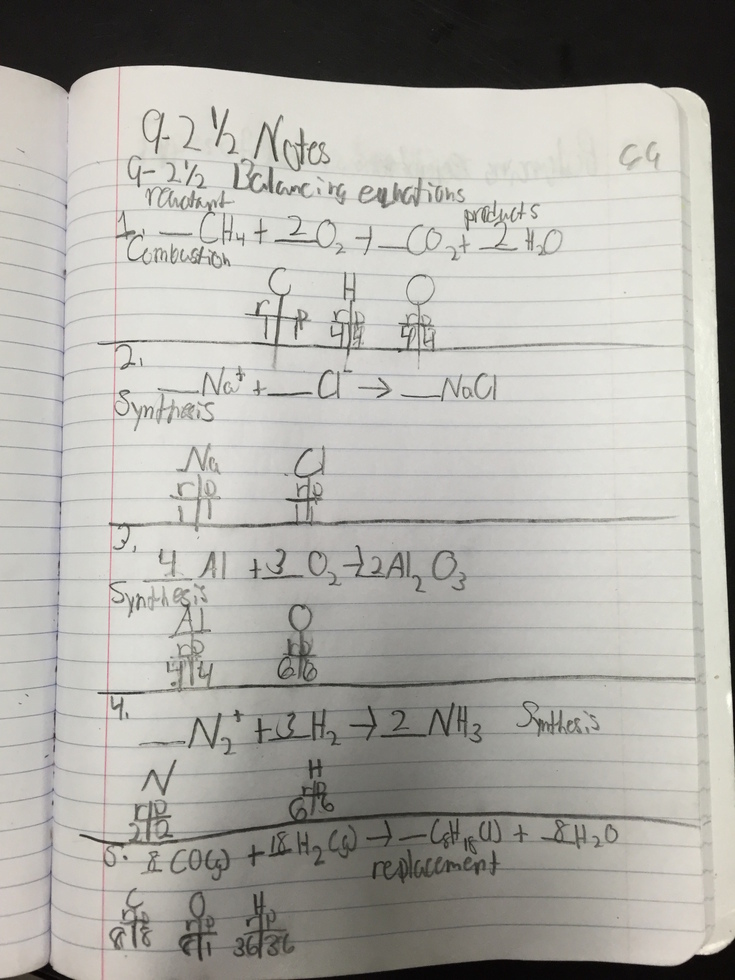 9-2 1/2 Notes
9-2 1/2 Balancing equations
reactant products
1. __CH4 + 2O2 → __CO2 + 2 H2O
Combustion
C H O
r p r p r p
1 1 4 4 4 4
2.
__Na+ + __Cl- → __NaCl
Synthesis
Na Cl
r p r p
1 1 1 1
3.
4 Al + 3 O2 → 2Al2O3
Synthesis
Al O
r p r p
4 4 6 6
4.
__N2+ + 3H2 → 2 NH3 Synthesis
N H
r p r p
2 2 6 6
5. 8 CO(g) + H2(g) → __C8H18(l) + 8H2O
replacement
C O H
r p r p r p
8 8 1 36 36